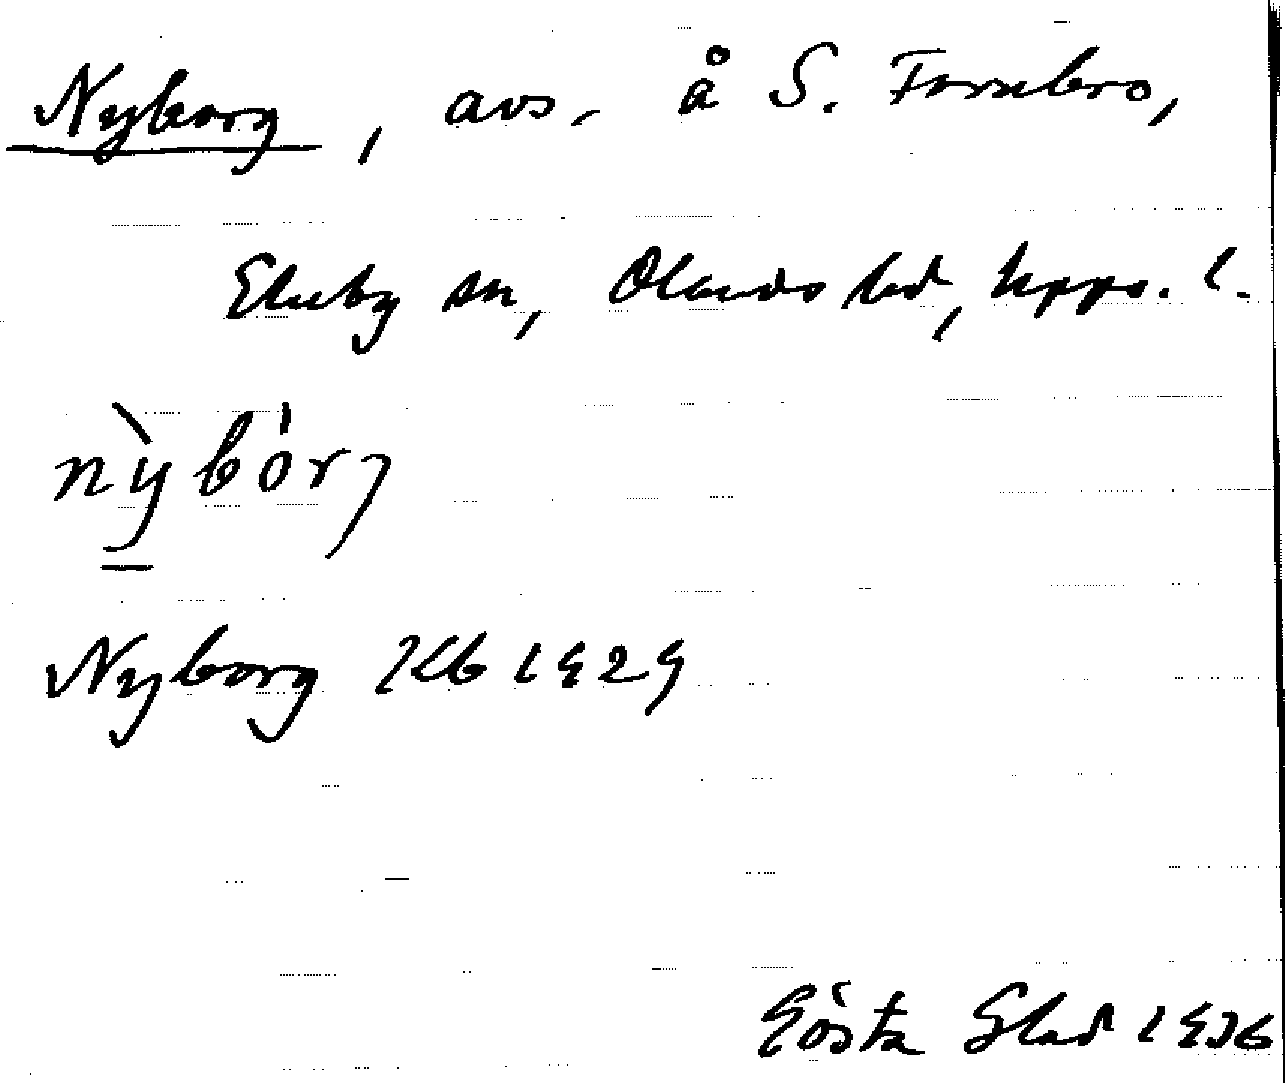 Nyborg, avs. å S. Fornbro,
Ekeby sn, Olands hd, Upps. l.
nỳbórȷ
Nyborg Kb 1929
Gösta Glad 1936